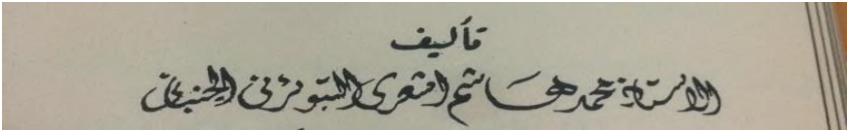 تأليف
الأستاذ محمد هاشم اشعرى التبوئرنى الجنبانى